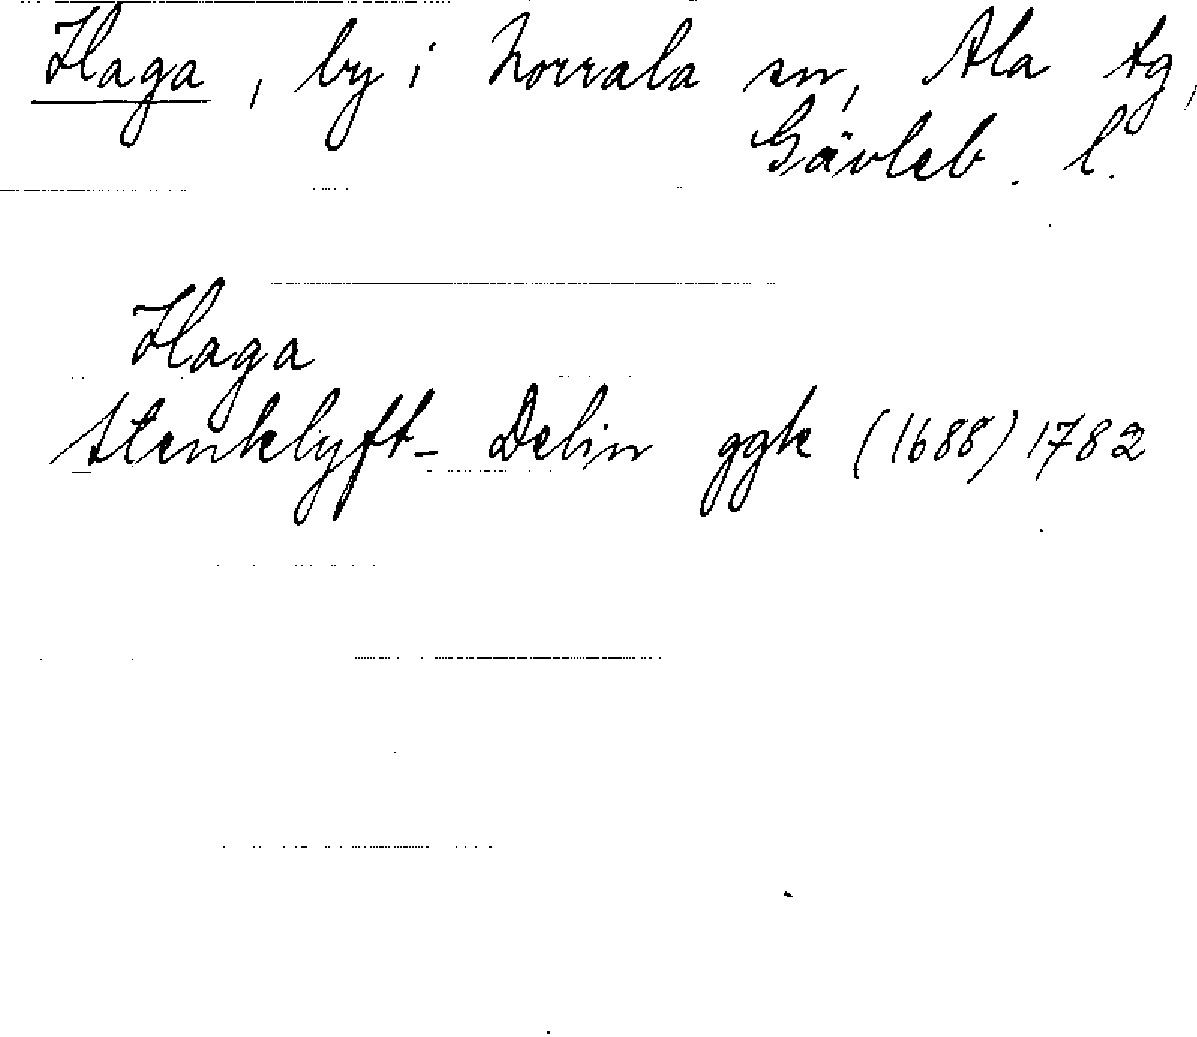 Haga, by i Norrala sn, Ala tg,
Gävleb. l.
Haga
Stenklyft- Delin ggk (1688) 1782